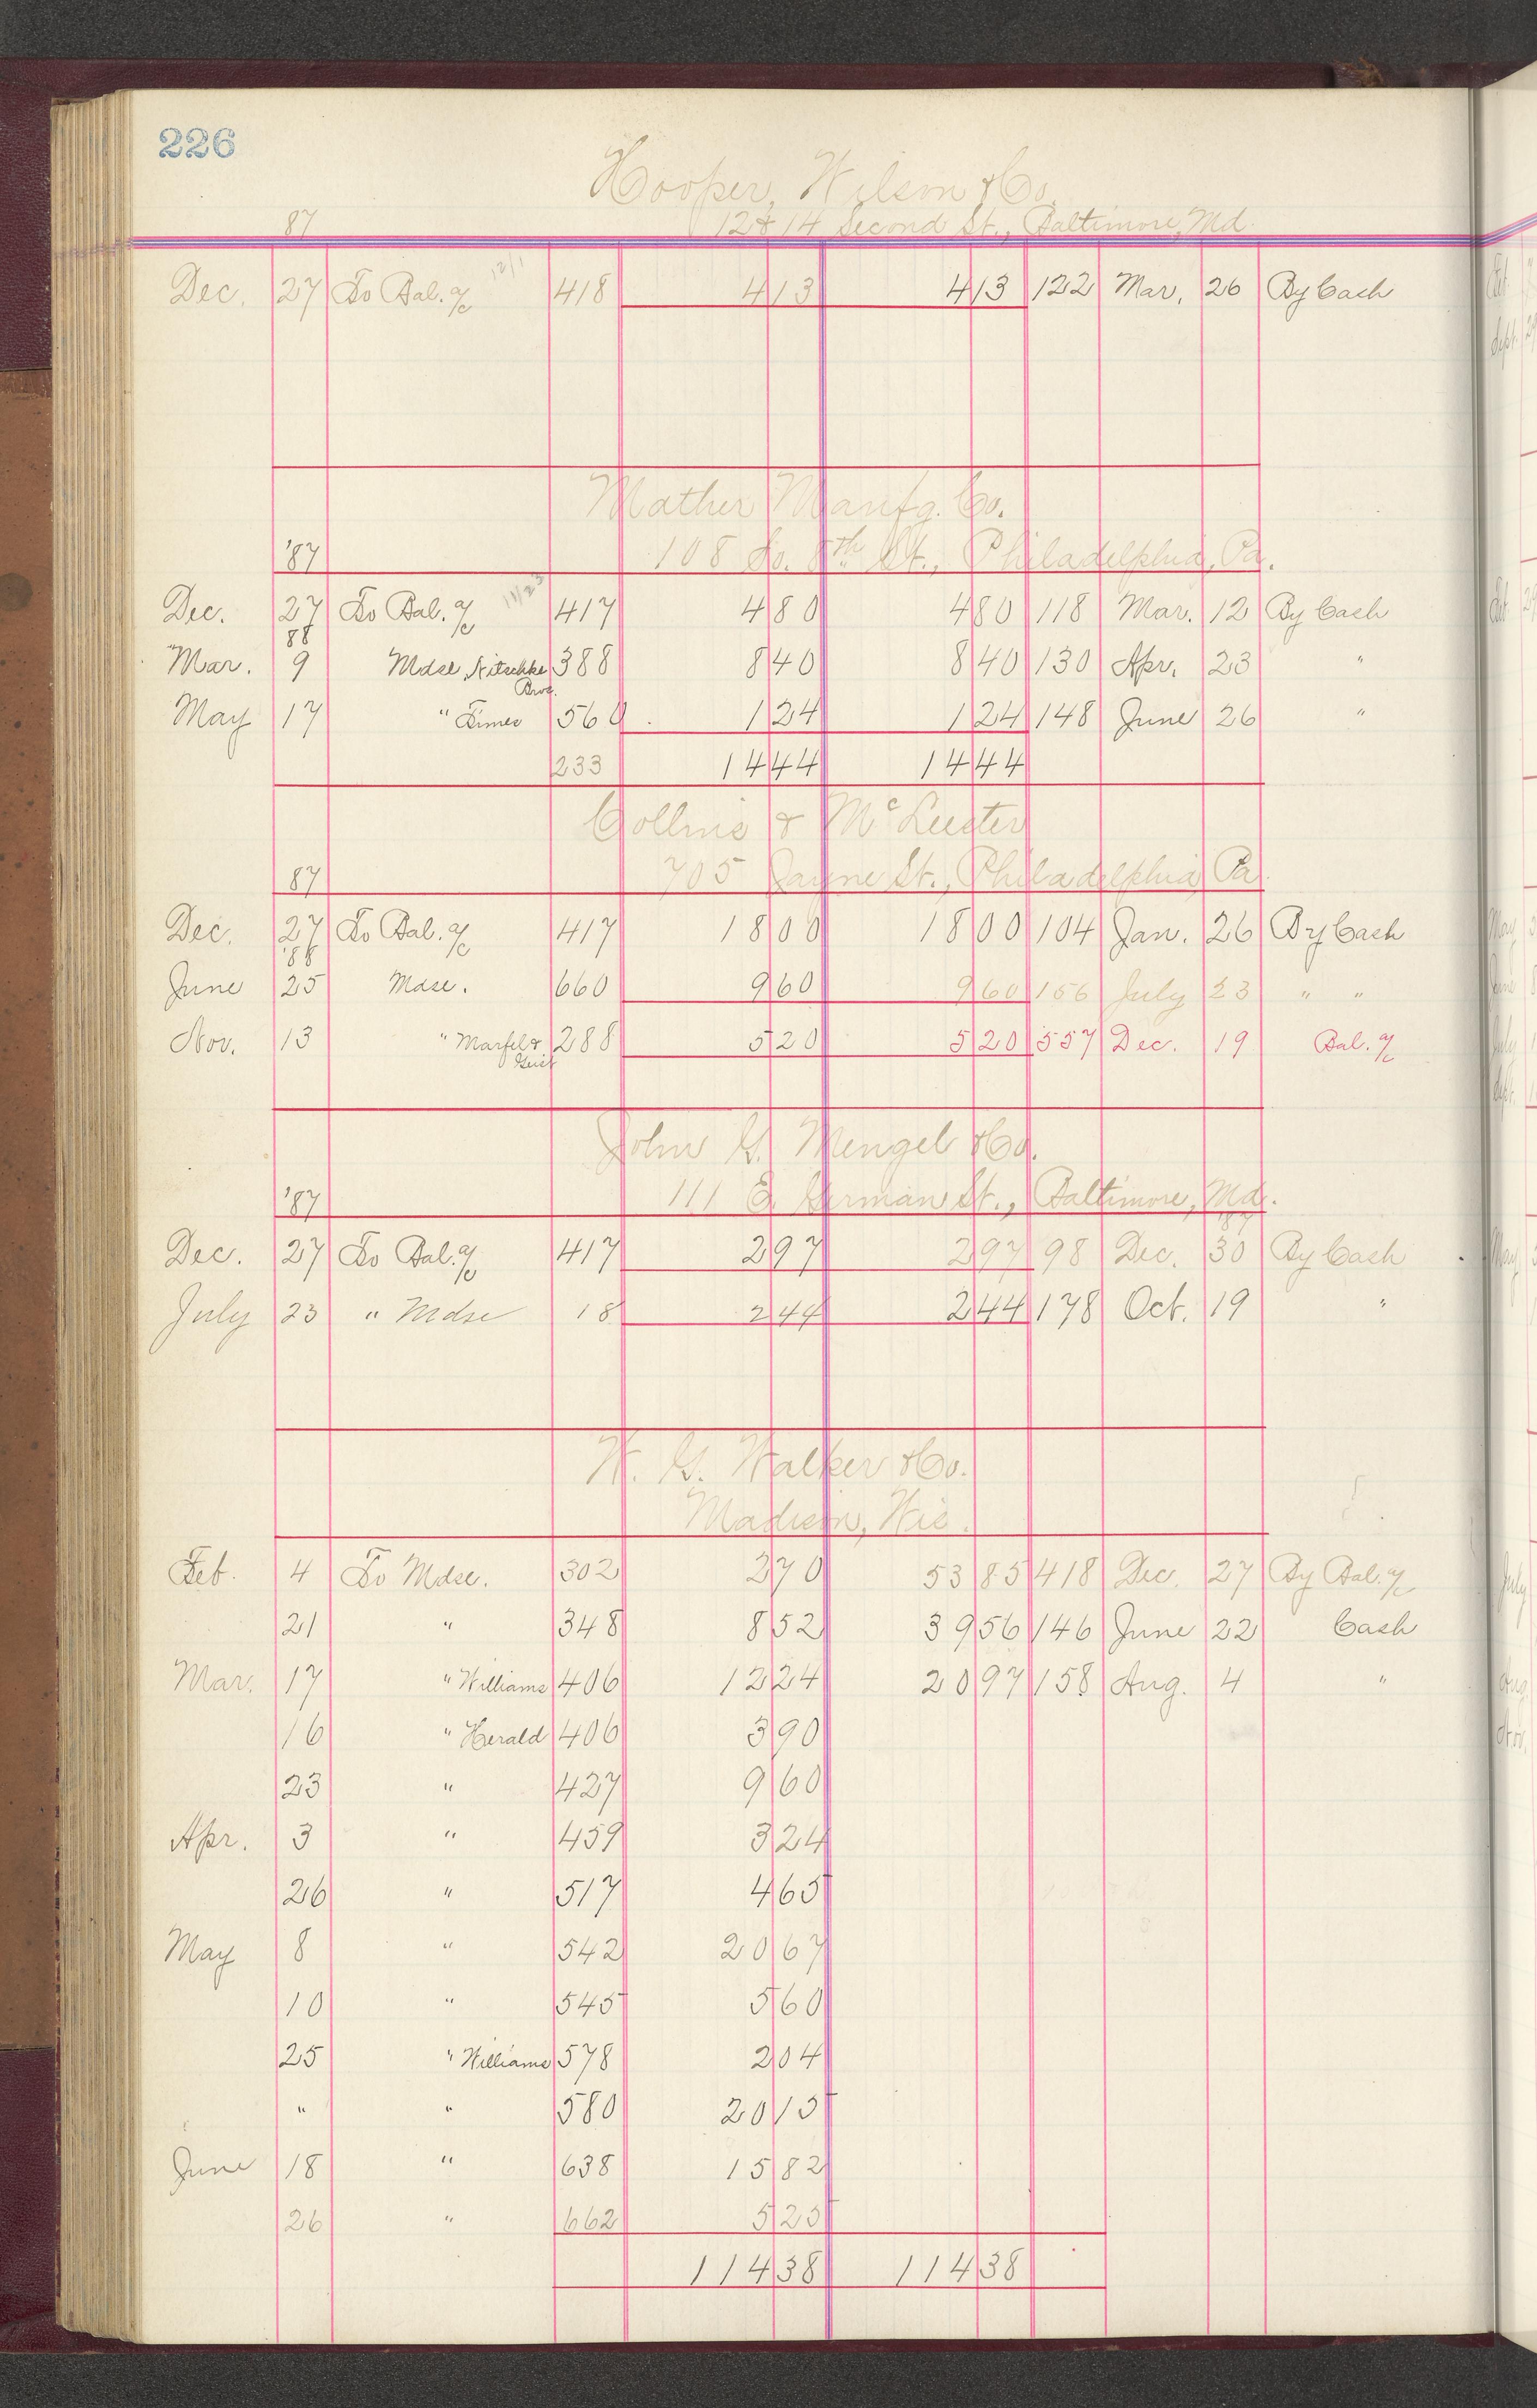 226
Hooper, Wilson & Co.
87 12 & 14 Second St., Baltimore, Md.
Dec. 27 To Bal. a/c 12/1 418 4 13 4 13 122 Mar. 26 By Cash
Mather Manfg. Co.
'87 108 So. 8th St., Philadelphia, Pa.
Dec. 27 To Bal. a/c 11/23 417 4 80 4 80 118 Mar. 12 By Cash
88
Mar. 9 Mdse Nitschke Bros. 388 8 40 8 40 130 Apr. 23 "
May 17 " Times 560 1 24 1 24 148 June 26 "
233 14 44 14 44
Collins & McLeester
87 705 Jayne St., Philadelphia Pa
Dec. 27 To Bal. a/c 417 18 00 18 00 104 Jan. 26 By Cash
'88
June 25 Mdse. 660 9 60 9 60 156 July 23 " "
Nov. 13 " Marfel & Geist 288 5 20 5 20 557 Dec. 19 Bal. a/c
John G. Mengel & Co.
'87 111 E. German St., Baltimore, Md.
'87
Dec. 27 To Bal. a/c 417 2 97 2 97 98 Dec. 30 By Cash
July 23 " Mdse 18 2 44 2 44 178 Oct. 19 "
W. G. Walker & Co.
Madison, Wis.
Feb. 4 To Mdse. 302 2 70 53 85 418 Dec. 27 By Bal. a/c
21 " 348 8 52 39 56 146 June 22 Cash
Mar. 17 " Williams 406 12 24 20 97 158 Aug. 4 "
16 " Herald 406 3 90
23 " 427 9 60
Apr. 3 " 459 3 24
26 " 517 4 65
May 8 " 542 20 67
10 " 545 5 60
25 " Williams 578 2 04
" " 580 20 15
June 18 " 638 15 82
26 " 662 5 25
114 38 114 38